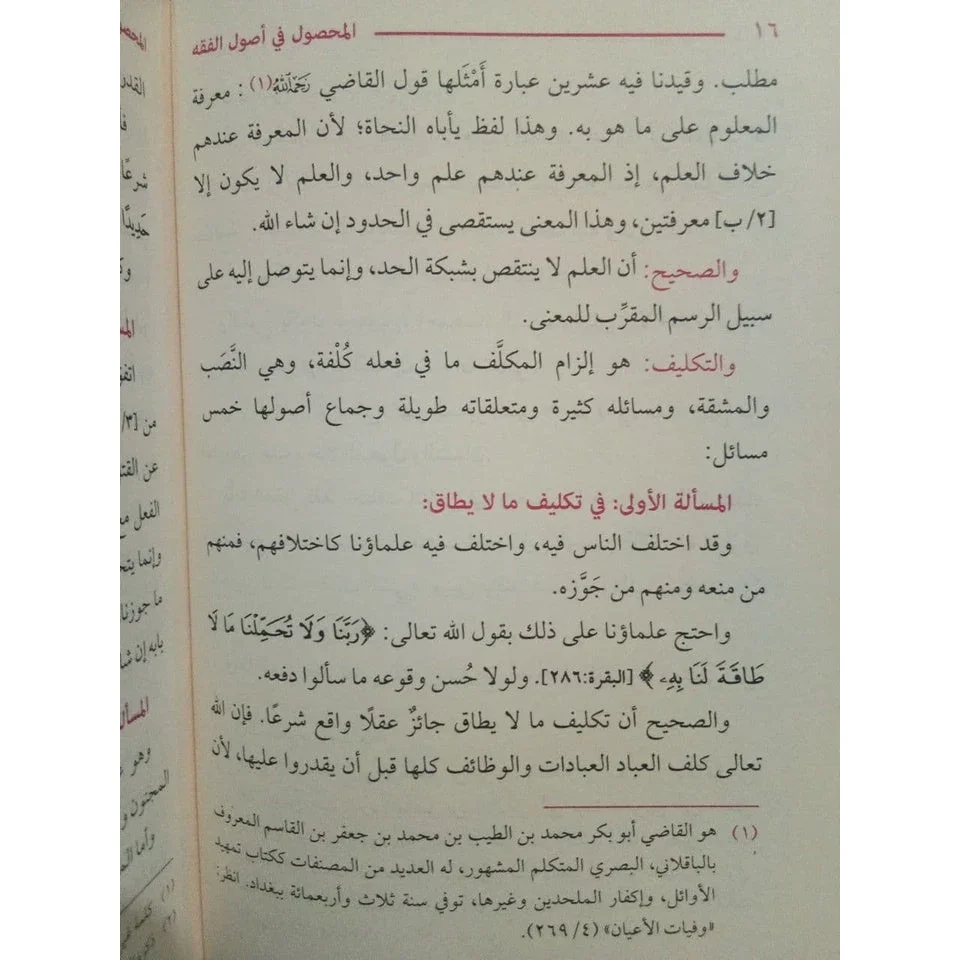 ١٦ المحصول في أصول الفقه
مطلب. وقيدنا فيه عشرين عبارة أَمْثَلها قول القاضي رَحِمَهُ اللَّهُ(١): معرفة
المعلوم على ما هو به. وهذا لفظ يأباه النحاة؛ لأن المعرفة عندهم
خلاف العلم، إذ المعرفة عندهم علم واحد، والعلم لا يكون إلا
[٢/ ب] معرفتين، وهذا المعنى يستقصى في الحدود إن شاء الله.
والصحيح: أن العلم لا ينتقص بشبكة الحد، وإنما يتوصل إليه على
سبيل الرسم المقرِّب للمعنى.
والتكليف: هو إلزام المكلَّف ما في فعله كُلْفة، وهي النَّصَب
والمشقة، ومسائله كثيرة ومتعلقاته طويلة وجماع أصولها خمس
مسائل:
المسألة الأولى: في تكليف ما لا يطاق:
وقد اختلف الناس فيه، واختلف فيه علماؤنا كاختلافهم، فمنهم
من منعه ومنهم من جَوَّزه.
واحتج علماؤنا على ذلك بقول الله تعالى: ﴿رَبَّنَا وَلَا تُحَمِّلْنَا مَا لَا
طَاقَةَ لَنَا بِهِۦ﴾ [البقرة:٢٨٦]. ولولا حُسن وقوعه ما سألوا دفعه.
والصحيح أن تكليف ما لا يطاق جائزٌ عقلًا واقع شرعًا. فإن الله
تعالى كلف العباد العبادات والوظائف كلها قبل أن يقدروا عليها، لأن
(١) هو القاضي أبو بكر محمد بن الطيب بن محمد بن جعفر بن القاسم المعروف
بالباقلاني، البصري المتكلم المشهور، له العديد من المصنفات ككتاب تمهيد
الأوائل، وإكفار الملحدين وغيرها، توفي سنة ثلاث وأربعمائة ببغداد. انظر:
«وفيات الأعيان» (٤/ ٢٦٩).
شرعًا
حَدِيدًا
اتفق
من [٣/
الفعل مع
وإنما يتح
ما جوزنا
بابه إن شا
وهو
المجنون و
وأما
(١)
(٢)